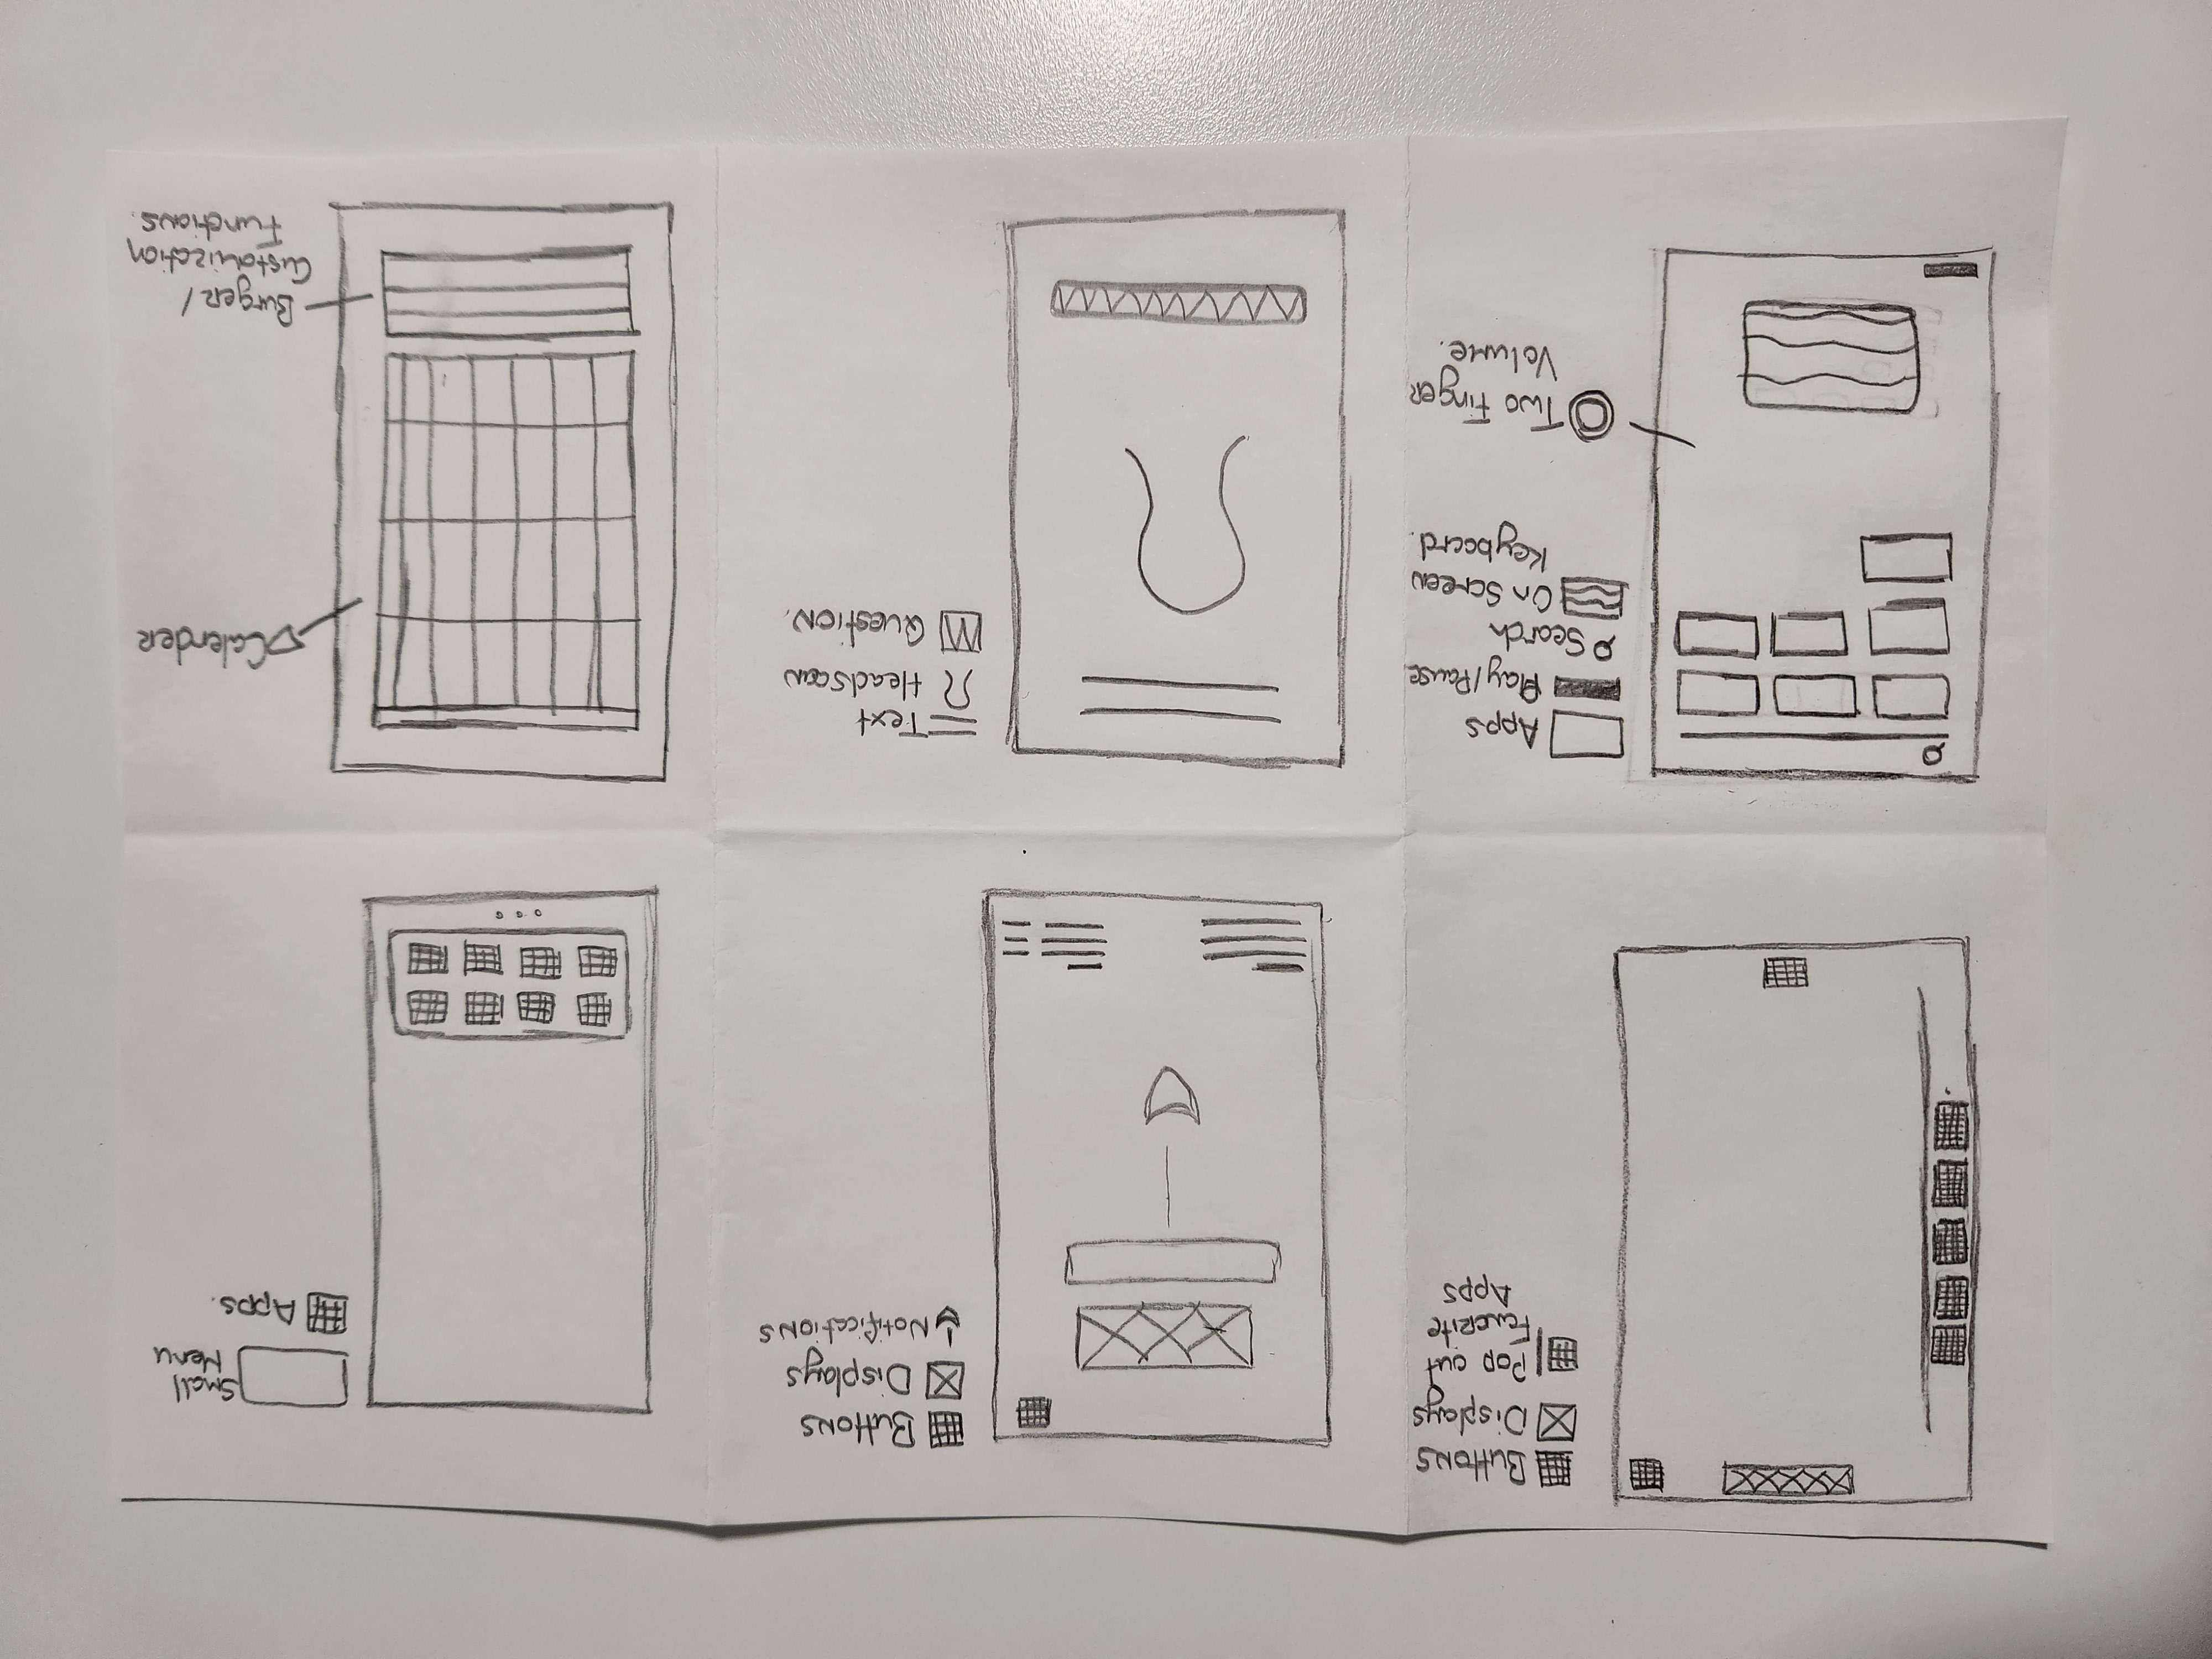 Buttons
Displays
Pop out
Favorite
Apps
Buttons
Displays
Notifications
Small
Menu
Apps.
Apps
Play/Pause
Search
On Screen
Keyboard.
Two Finger
Volume.
Text
Headscan
Question.
Calender
Burger/
Customization
Functions.